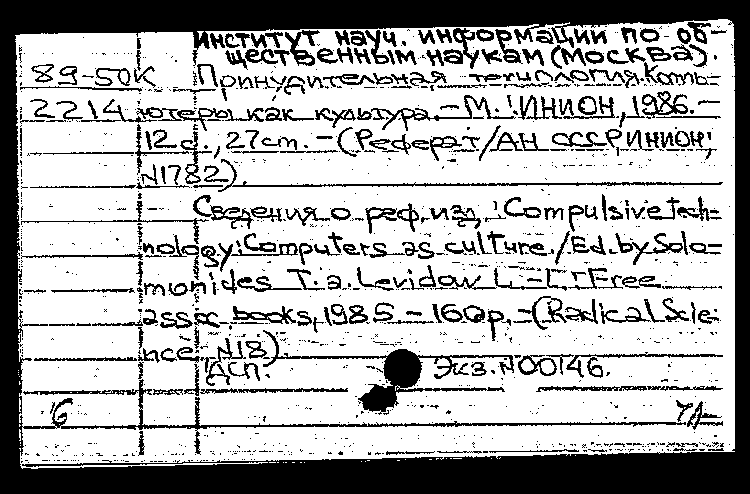 институт науч. информации по об-
щественным наукам (Москва).
89-50К Принудительная технология. Компь-
2214 ютеры как культура. - М.: ИНИОН, 1986. -
12 с., 27 cm. - (Реферат / АН СССР, ИНИОН;
N1782).
Сведения о реф. изд.: Compulsive tech-
nology: Computers as culture. / Ed. by Solo-
monides T. a. Levidow L. - L.: Free
assoc books, 1985. - 160 p. - (Radical Scie-
nce N18).
ДСП. Экз. N00146.
6